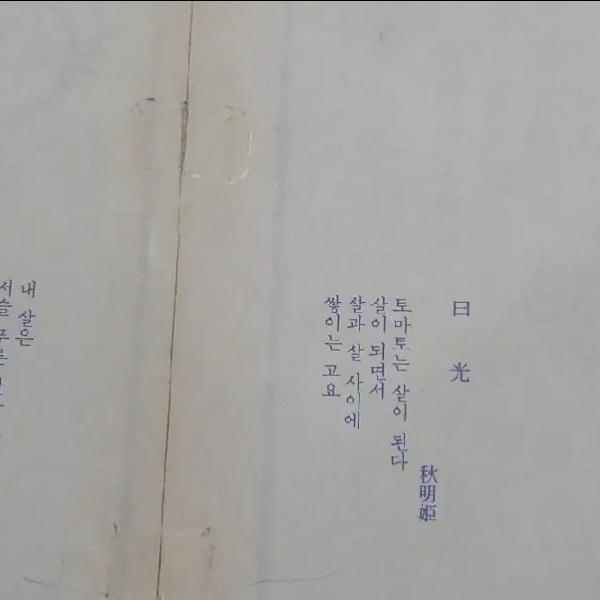 日光
秋明姫
토마토는 살이 된다
살이 되면서
살과 살 사이에
쌓이는 고요
내 살은
서슬 푸른